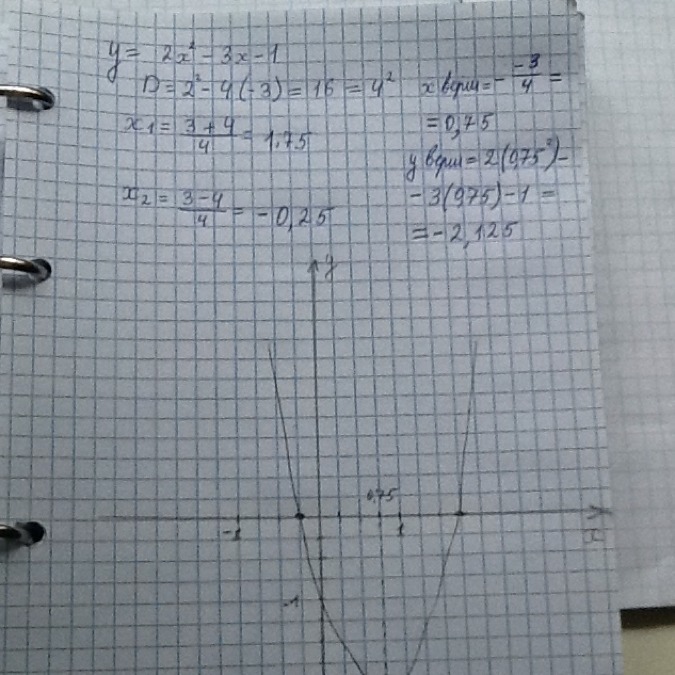 y = 2x² - 3x - 1
D = 2² - 4(-3) = 16 = 4²
x₁ = (3+4)/4 = 1,75
x₂ = (3-4)/4 = -0,25
x верш = - (-3)/4 =
= 0,75
y верш = 2(0,75²) -
- 3(0,75) - 1 =
= -2,125
y
0,75
-1 1 x
-1